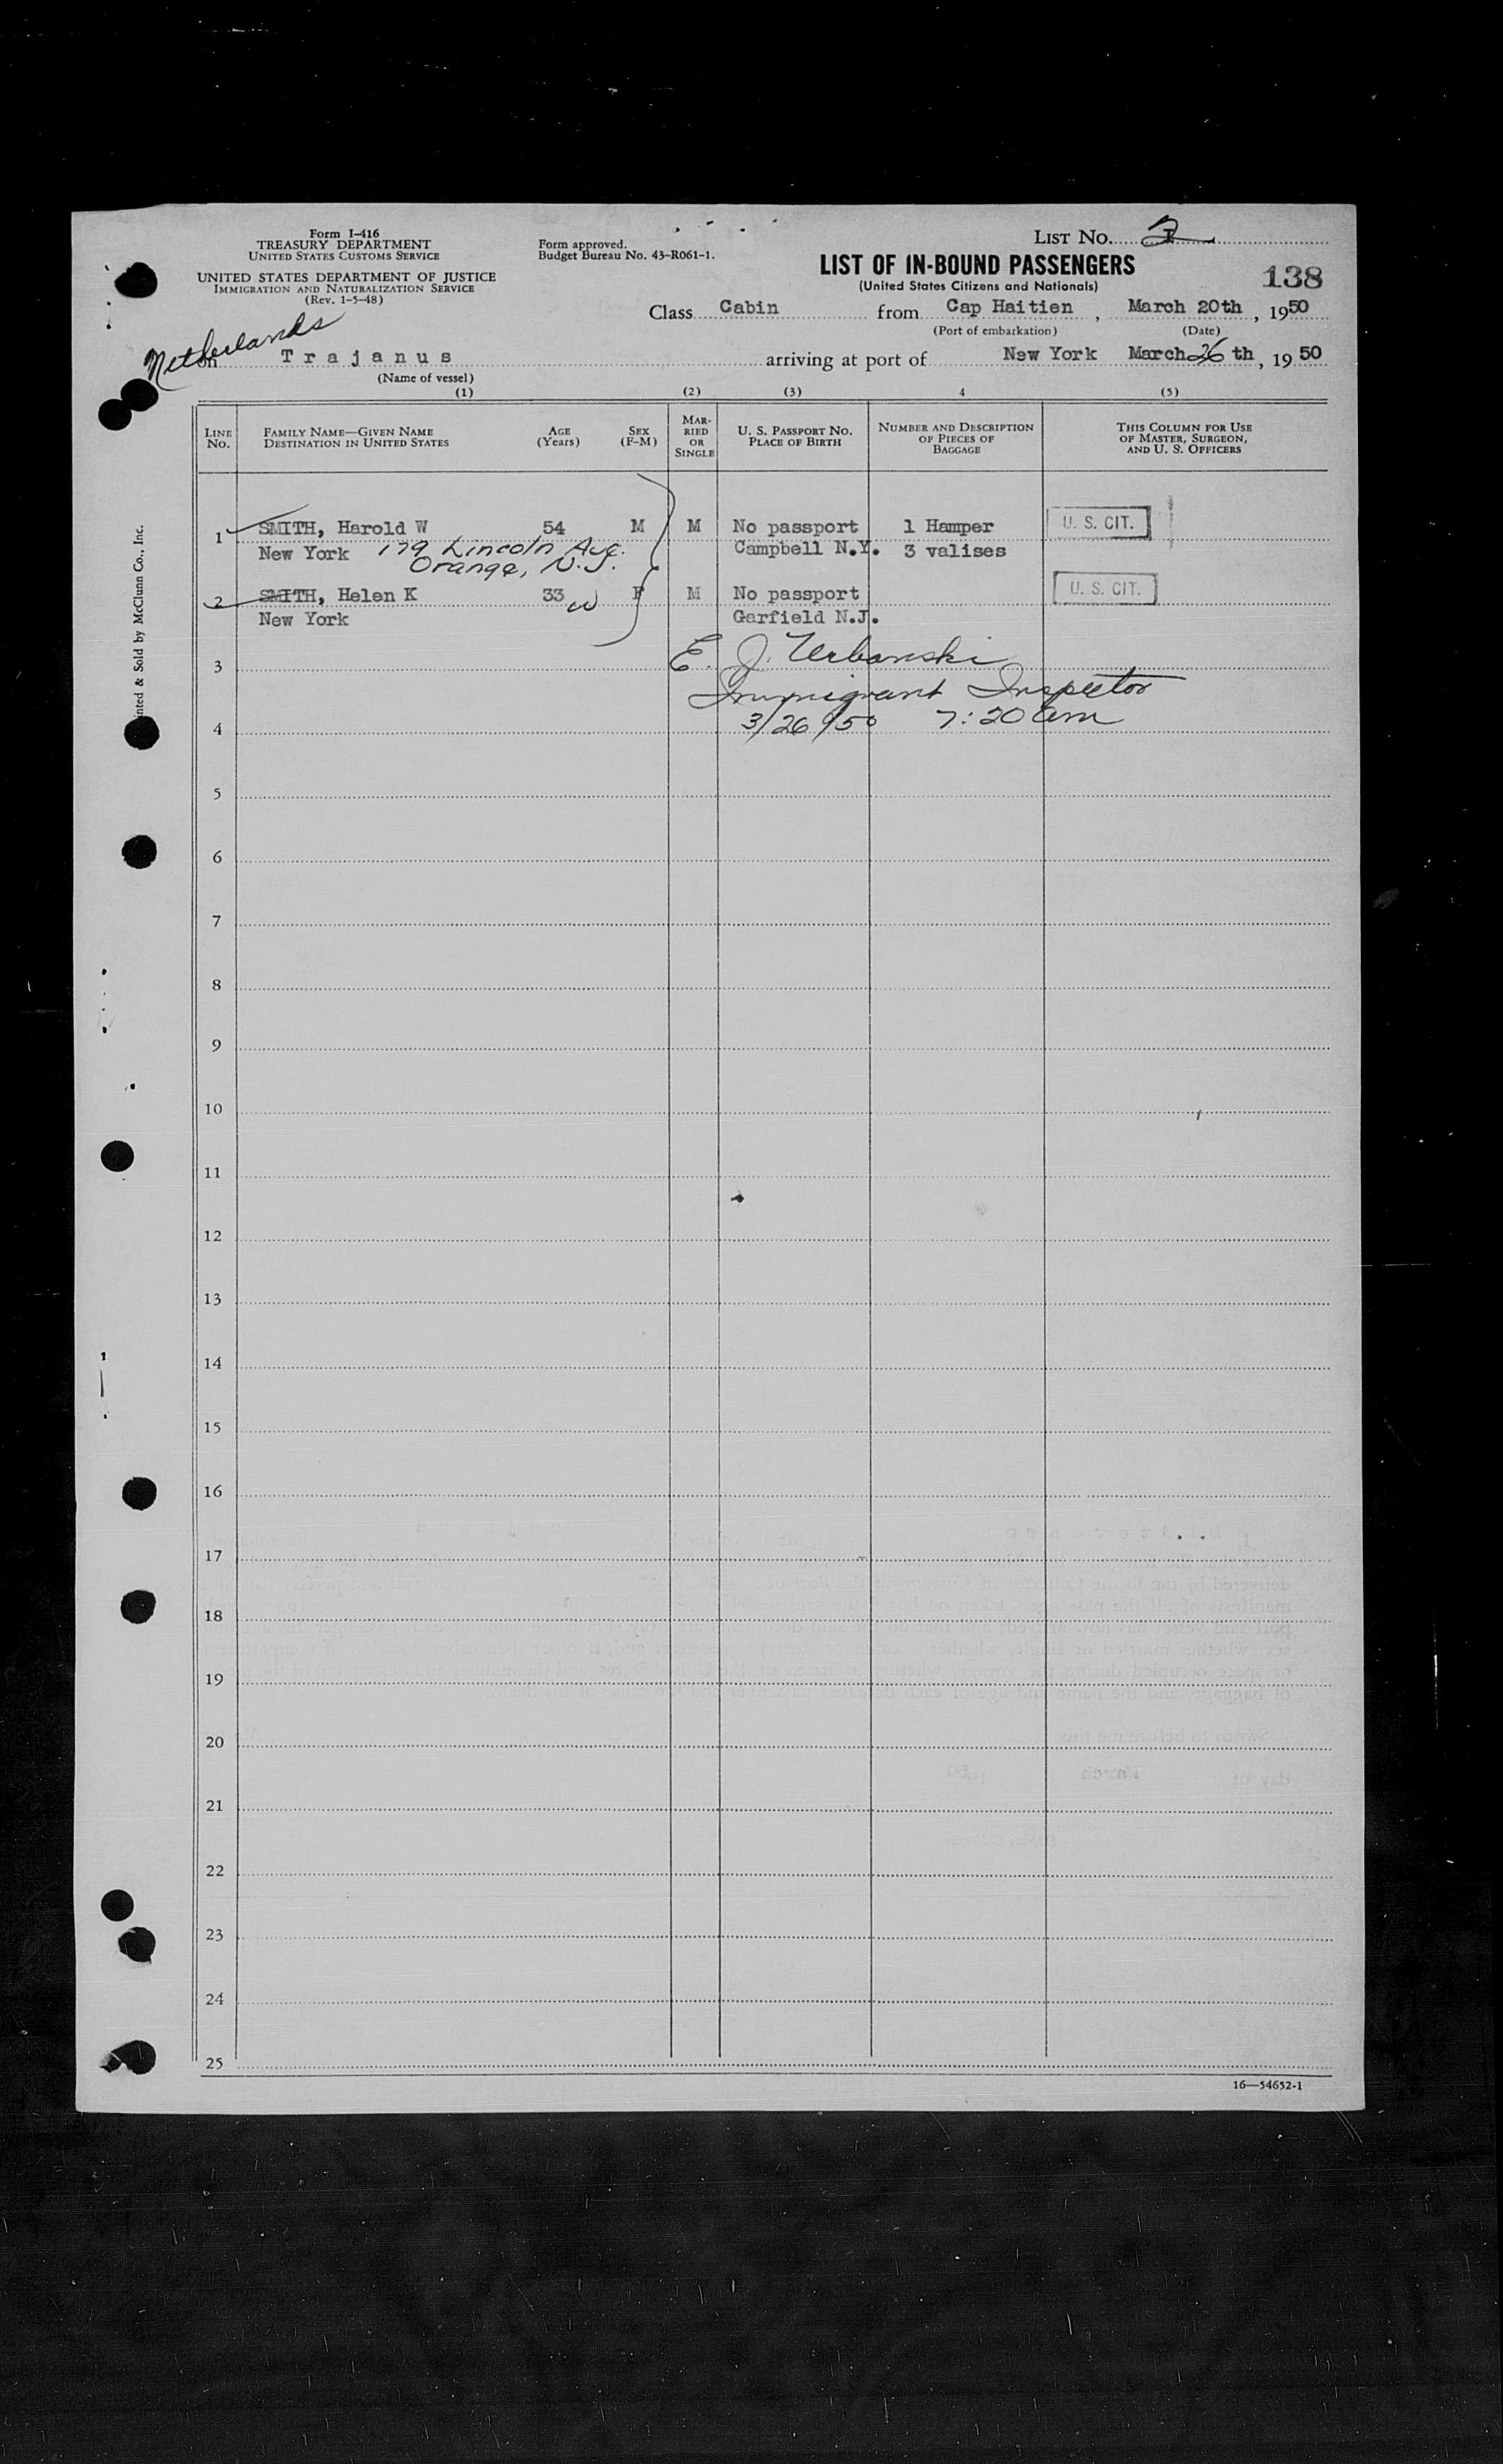 Form I-416
TREASURY DEPARTMENT
UNITED STATES CUSTOMS SERVICE
UNITED STATES DEPARTMENT OF JUSTICE
IMMIGRATION AND NATURALIZATION SERVICE
(Rev. 1-5-48)
Form approved.
Budget Bureau No. 43-R061-1.
LIST No. 2
LIST OF IN-BOUND PASSENGERS
(United States Citizens and Nationals)
138
Class Cabin from Cap Haitien, March 20th, 1950
(Port of embarkation) (Date)
Netherlands
on Trajanus arriving at port of New York March 26 th, 1950
(Name of vessel)
(1) (2) (3) 4 (5)
LINE No. FAMILY NAME—GIVEN NAME DESTINATION IN UNITED STATES AGE (Years) SEX (F-M) MARRIED OR SINGLE U. S. PASSPORT No. PLACE OF BIRTH NUMBER AND DESCRIPTION OF PIECES OF BAGGAGE THIS COLUMN FOR USE OF MASTER, SURGEON, AND U. S. OFFICERS
1 SMITH, Harold W 54 M M No passport 1 Hamper U. S. CIT.
New York 179 Lincoln Ave. Campbell N.Y. 3 valises
Orange, N.J.
2 SMITH, Helen K 33 w F M No passport U. S. CIT.
New York Garfield N.J.
3 E. J. Urbanski
Immigrant Inspector
4 3/26/50 7:20 am
5
6
7
8
9
10
11
12
13
14
15
16
17
18
19
20
21
22
23
24
25
16—54652-1
inted & Sold by McClunn Co., Inc.